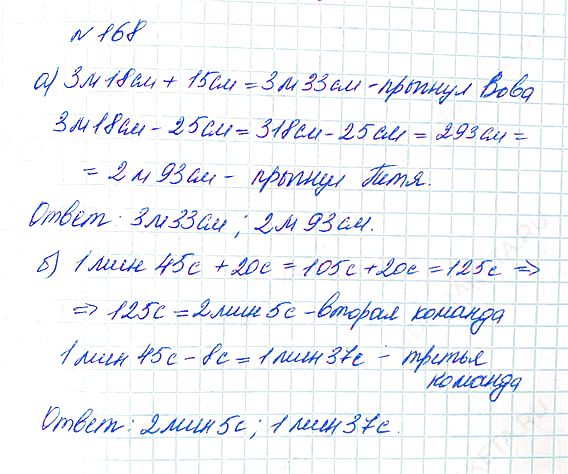 № 168
а) 3м 18см + 15см = 3м 33см - прыгнул Вова
3м 18см - 25см = 318см - 25см = 293см =
= 2м 93см - прыгнул Петя.
Ответ: 3м 33см; 2м 93см.
б) 1 мин 45с + 20с = 105с + 20с = 125с =>
=> 125с = 2мин 5с - вторая команда
1 мин 45с - 8с = 1 мин 37с - третья
команда
Ответ: 2мин 5с; 1 мин 37с.